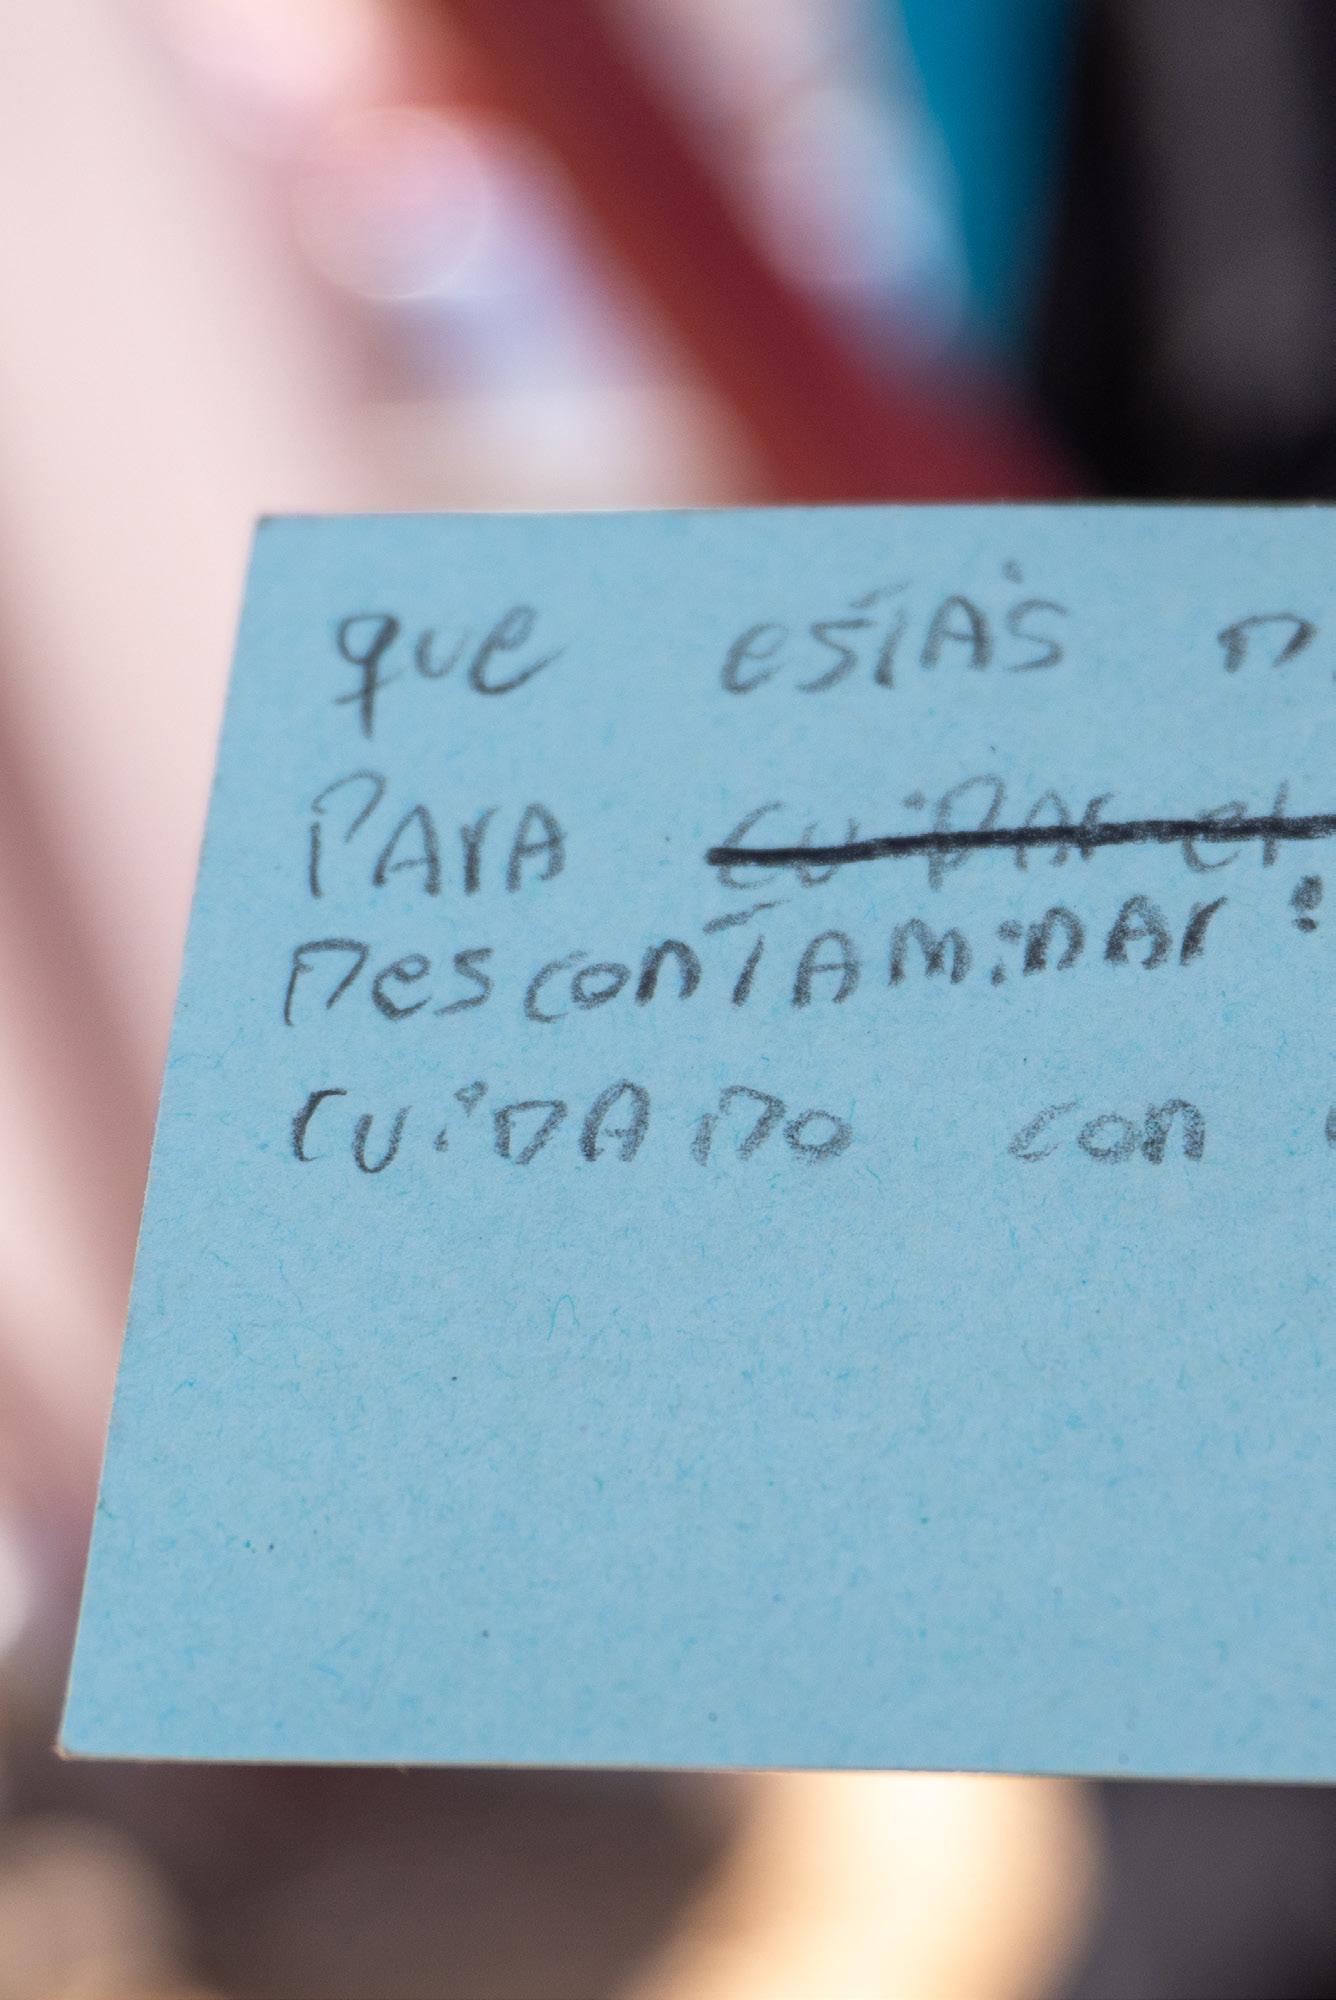 que estás
Para cuidar el
Descontaminar
cuidado con